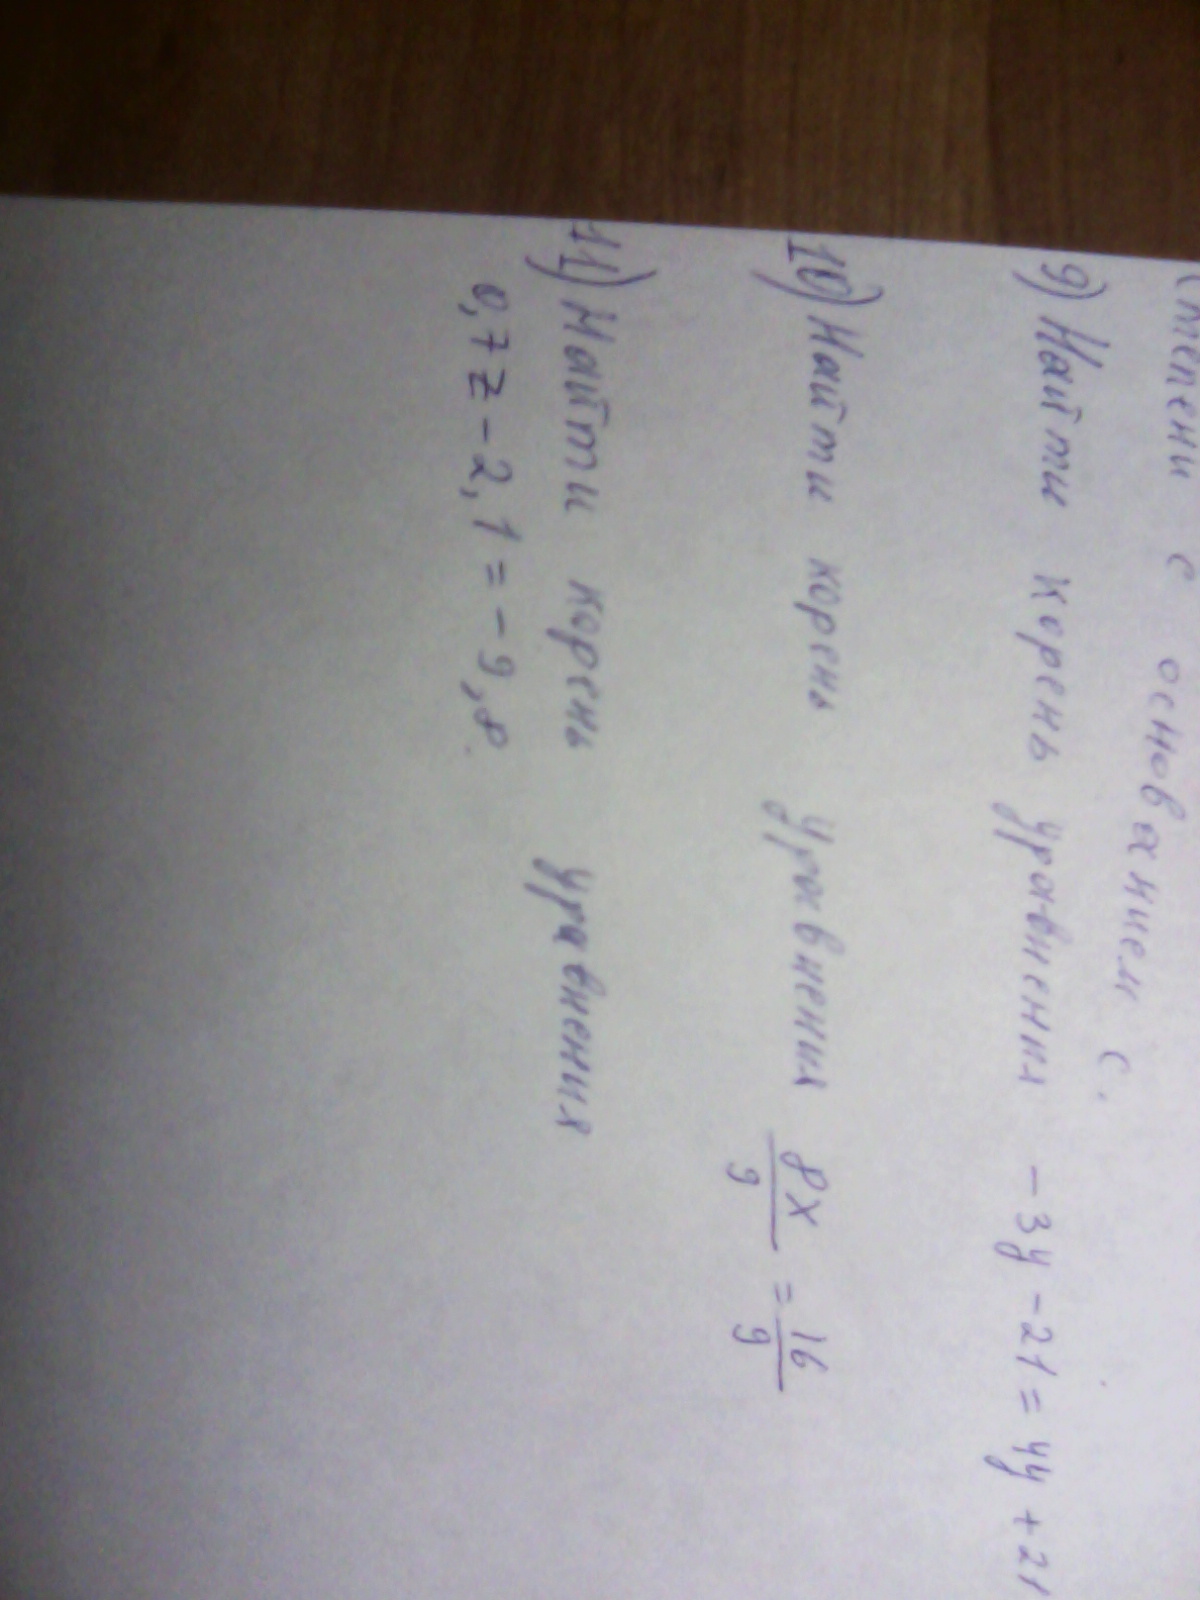 степени с основанием с.
9) Найти корень уравнения -3y - 21 = 4y + 21
10) Найти корень уравнения 8x/9 = 16/9
11) Найти корень уравнения
0,7z - 2,1 = -9,8.